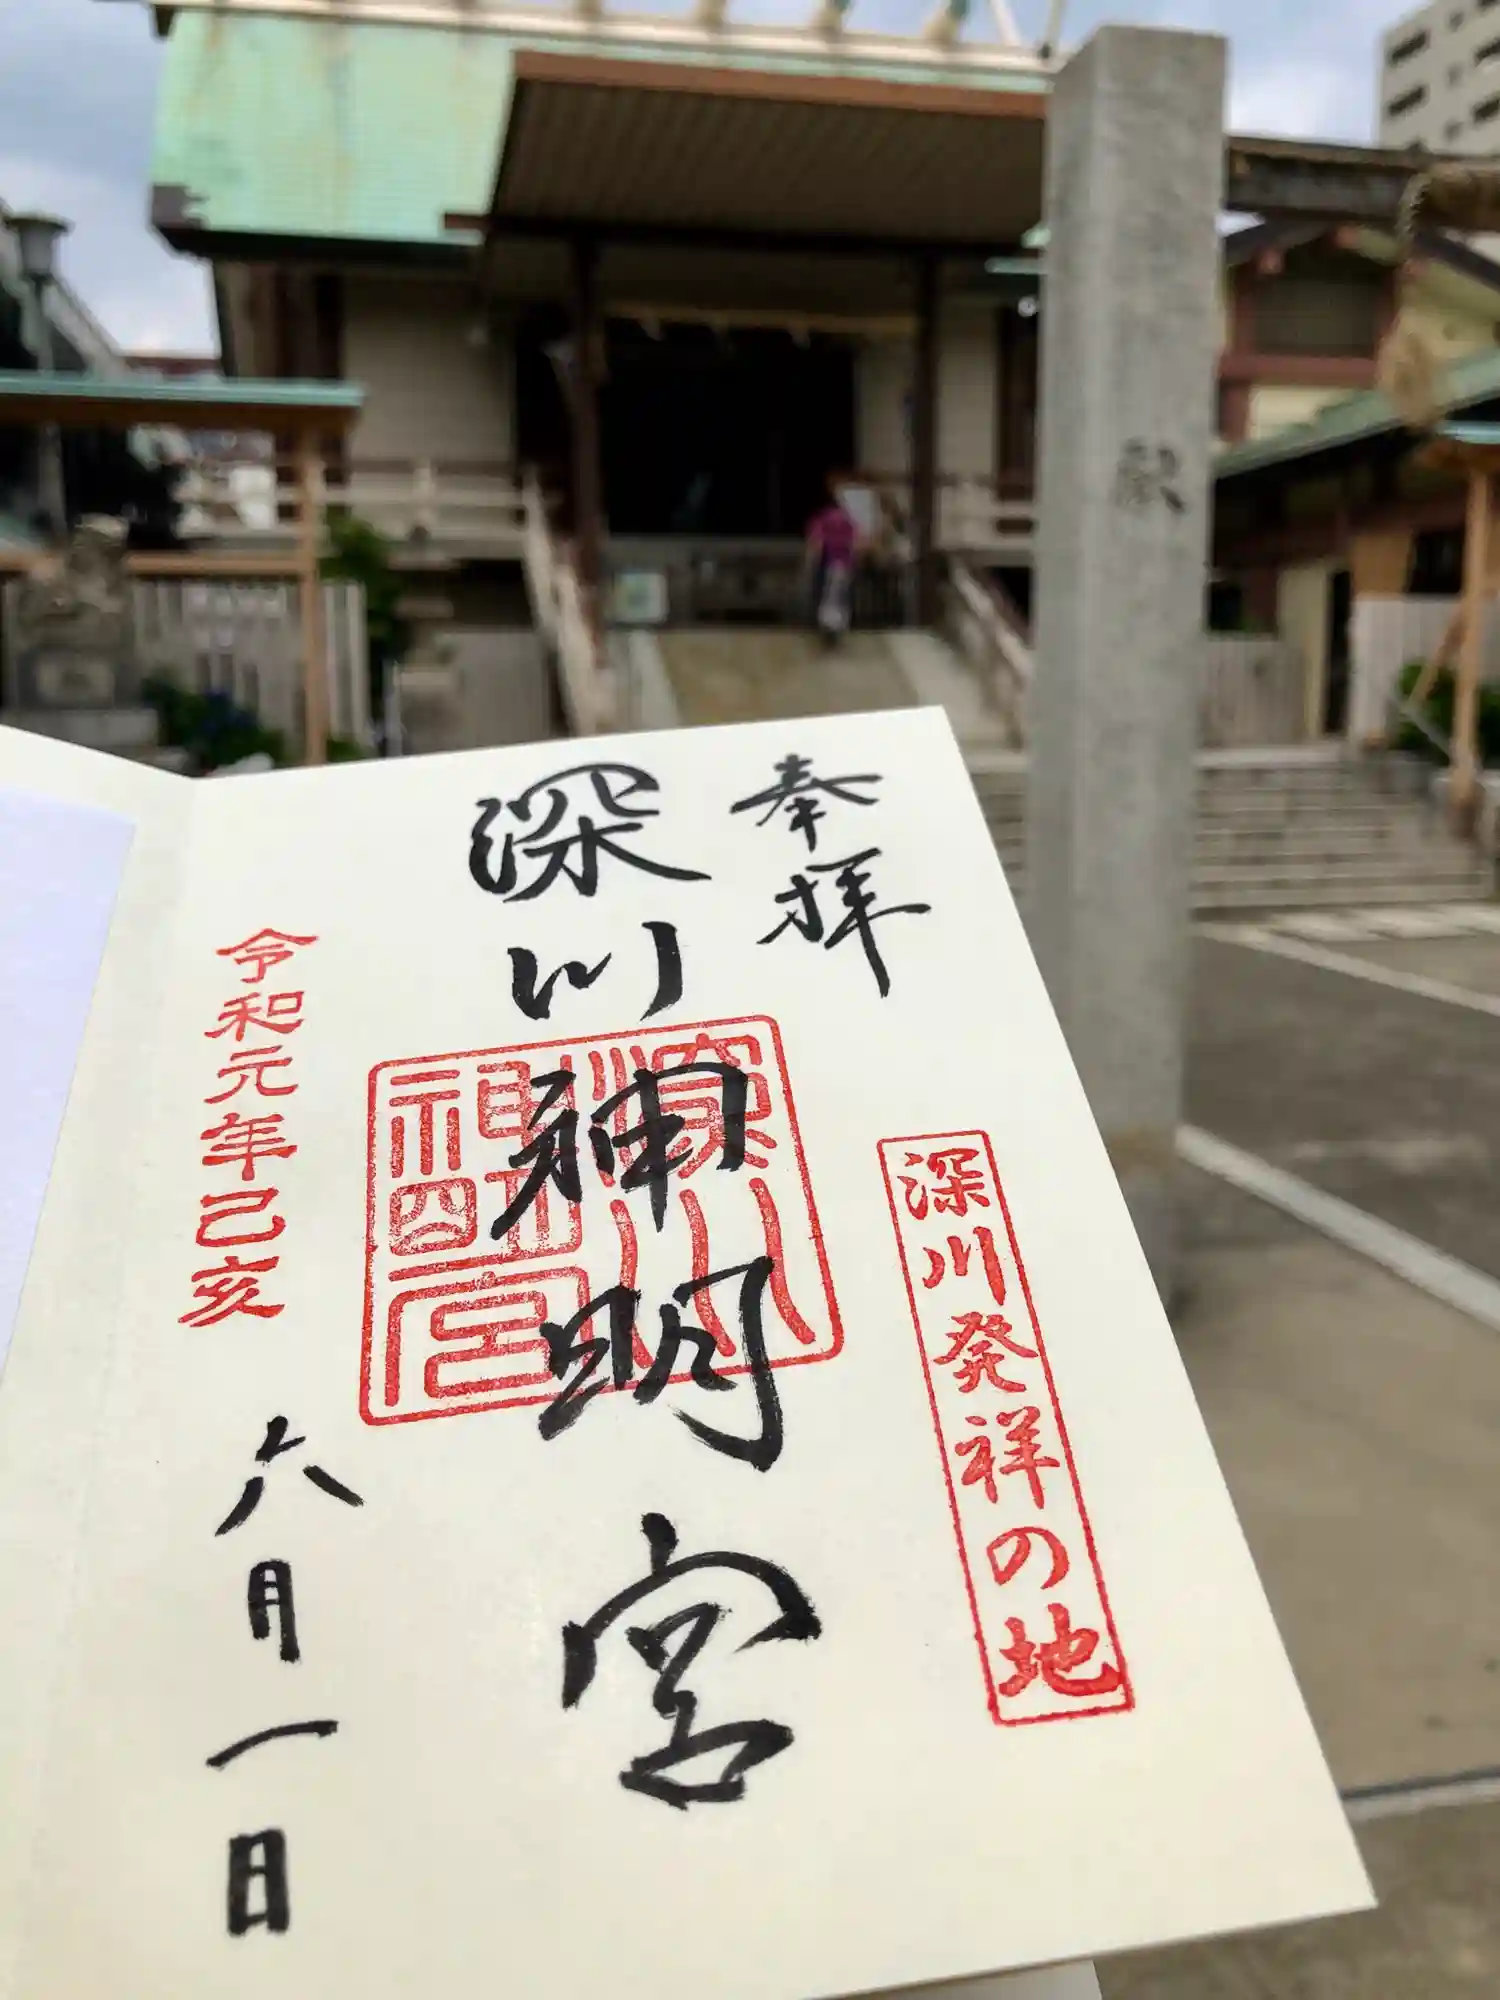 奉拝
深川発祥の地
深川神明宮
深川神明宮
令和元年己亥
六月一日
献